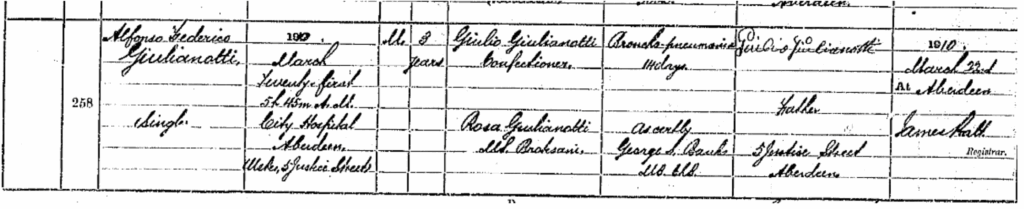 258
Alfonso Federico
Giulianotti.
Single
1910.
March
Twenty-first
5h. 45m. A.M.
City Hospital
Aberdeen.
Usual, 5 Justice Street
M.
3
years
Giulio Giulianotti
Confectioner.
Rosa Giulianotti
M.S.
Broncho-pneumonia
14 days.
As cert by
George S. Banks
M.B. Ch.B.
Giulio Giulianotti
Father
5 Justice Street
Aberdeen
1910.
March 22d
At Aberdeen
James
Registrar.